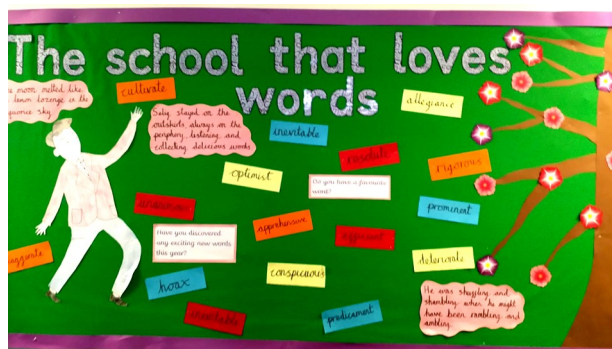 The school that loves
words
cultivate
moon melted like
lemon lozenge in the
sky
Selig stayed on the
outskirts, always on the
periphery, listening and
collecting delicious words
inevitable
allegiance
resolute
rigorous
optimist
Do you have a favourite
word?
prominent
apprehensive
Have you discovered
any exciting new words
this year?
deteriorate
conspicuous
hoax
predicament
He was shuffling and
shambling when he might
have been rambling and
ambling.